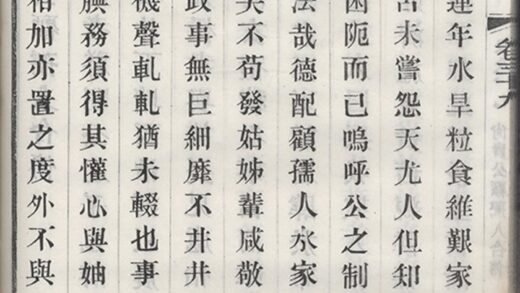 卷三十九
連年水旱粒食維艱家
古未嘗怨天尤人但知
困阨而已嗚呼公之制
法哉德配顧孺人氷家
笑不苟發姑姊輩咸敬
政事無巨細靡不井井
機聲軋軋猶未輟也事
腴務須得其懽心與妯
相加亦置之度外不與